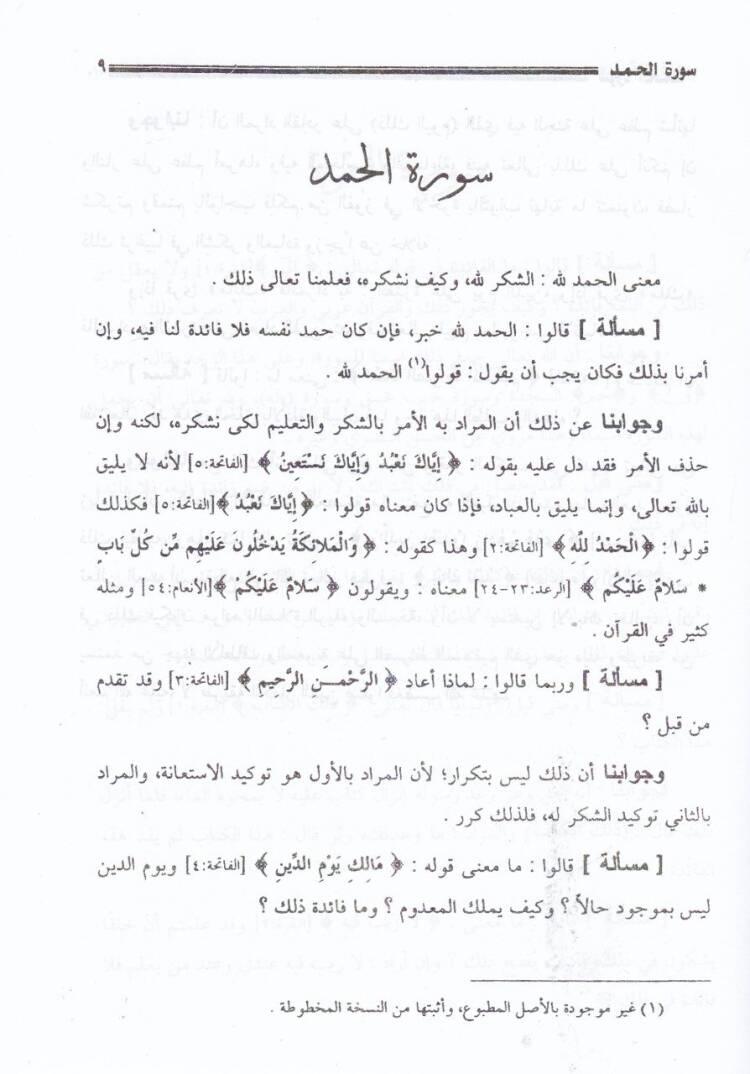 سورة الحمد ٩
سورة الحمد
معنى الحمد لله : الشكر لله، وكيف نشكره، فعلمنا تعالى ذلك .
[ مسألة ] قالوا : الحمد لله خبر، فإن كان حمد نفسه فلا فائدة لنا فيه، وإن
أمرنا بذلك فكان يجب أن يقول : قولوا(١) الحمد لله .
وجوابنا عن ذلك أن المراد به الأمر بالشكر والتعليم لكى نشكره، لكنه وإن
حذف الأمر فقد دل عليه بقوله : ﴿ إِيَّاكَ نَعْبُدُ وَإِيَّاكَ نَسْتَعِينُ ﴾ [الفاتحة:٥] لأنه لا يليق
بالله تعالى، وإنما يليق بالعباد، فإذا كان معناه قولوا : ﴿ إِيَّاكَ نَعْبُدُ ﴾[الفاتحة:٥] فكذلك
قولوا : ﴿ الْحَمْدُ لله ﴾ [الفاتحة:٢] وهذا كقوله : ﴿ وَالْمَلائكَةُ يَدْخُلُون عَلَيْهِم مِّن كُلِّ بَابٍ
* سَلامٌ عَلَيْكُم ﴾ [الرعد:٢٣-٢٤] معناه : ويقولون ﴿ سَلامٌ عَلَيْكُم ﴾[الأنعام:٥٤] ومثله
كثير في القرآن .
[ مسألة ] وربما قالوا : لماذا أعاد ﴿ الرَّحْمَنِ الرَّحِيمِ ﴾ [الفاتحة:٣] وقد تقدم
من قبل ؟
وجوابنا أن ذلك ليس بتكرار؛ لأن المراد بالأول هو توكيد الاستعانة، والمراد
بالثاني توكيد الشكر له، فلذلك كرر .
[ مسألة ] قالوا : ما معنى قوله : ﴿ مَالِكِ يَوْمِ الدِّينِ ﴾ [الفاتحة:٤] ويوم الدين
ليس بموجود حالاً ؟ وكيف يملك المعدوم ؟ وما فائدة ذلك ؟
(١) غير موجودة بالأصل المطبوع، وأثبتها من النسخة المخطوطة .